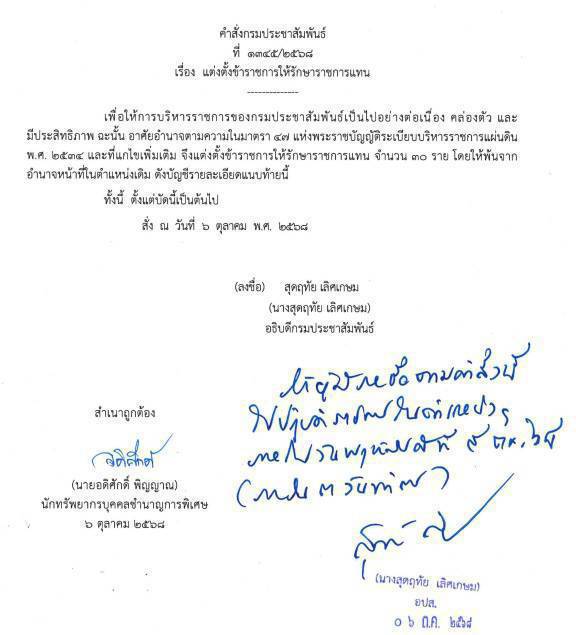 คำสั่งกรมประชาสัมพันธ์
ที่ ๑๓๔๕/๒๕๖๘
เรื่อง แต่งตั้งข้าราชการให้รักษาราชการแทน
--------------
เพื่อให้การบริหารราชการของกรมประชาสัมพันธ์เป็นไปอย่างต่อเนื่อง คล่องตัว และ
มีประสิทธิภาพ ฉะนั้น อาศัยอำนาจตามความในมาตรา ๔๗ แห่งพระราชบัญญัติระเบียบบริหารราชการแผ่นดิน
พ.ศ. ๒๕๓๔ และที่แก้ไขเพิ่มเติม จึงแต่งตั้งข้าราชการให้รักษาราชการแทน จำนวน ๓๐ ราย โดยให้พ้นจาก
อำนาจหน้าที่ในตำแหน่งเดิม ดังบัญชีรายละเอียดแนบท้ายนี้
ทั้งนี้ ตั้งแต่บัดนี้เป็นต้นไป
สั่ง ณ วันที่ ๖ ตุลาคม พ.ศ. ๒๕๖๘
(ลงชื่อ) สุดฤทัย เลิศเกษม
(นางสุดฤทัย เลิศเกษม)
อธิบดีกรมประชาสัมพันธ์
ให้ผู้มีรายชื่อตามคำสั่งนี้
ไปปฏิบัติราชการในตำแหน่งฯ
ภายในวันพฤหัสบดีที่ ๙ ต.ค. ๖๘
(ภายใน ๓ วันทำการ)
สำเนาถูกต้อง
อดิศักดิ์
(นายอดิศักดิ์ พิญญาณ)
นักทรัพยากรบุคคลชำนาญการพิเศษ
๖ ตุลาคม ๒๕๖๘
(นางสุดฤทัย เลิศเกษม)
อปส.
๐๖ ต.ค. ๒๕๖๘